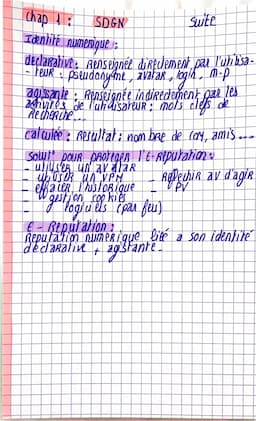 Chap 1 : SDGN Suite
Identité numérique :
déclarative : Renseigné directement par l'utilisa-
- teur : pseudonyme, avatar, login, m-p
agissante : Renseignée indirectement par les
activités de l'utilisateur : mots clefs de
Recherche...
calculée : Résultat : nombre de amis...
pour protéger l'E-Réputation :
- utiliser un avatar
- utiliser un VPN - Réfléchir av d'agir
- effacer l'historique - PV
- gestion cookies
- logiciels (par feu)
E-Réputation :
Réputation numérique lié a son identité
déclarative + agissante.